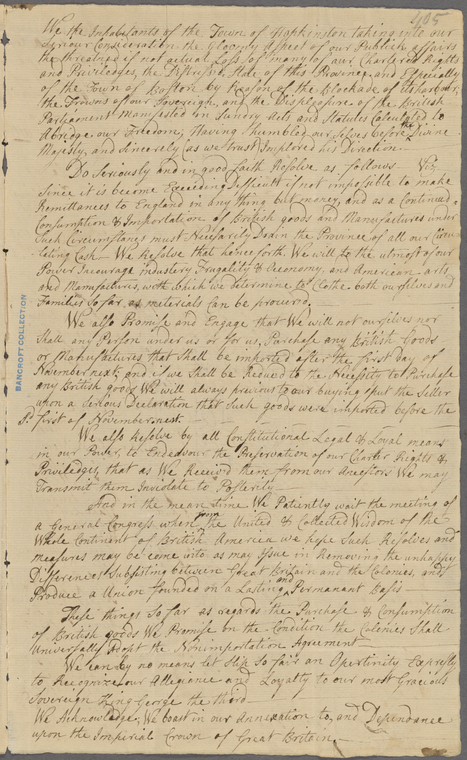 405
We the Inhabitants of the Town of Hopkinston taking into our
Serious Consideration the Gloomy Aspect of our Publick affairs
the threatned if not actual Loss of many of our Charterd Rights
and Priviledges, the Distressed State of this Province and Especially
of the Town of Boston by Reason of the Blockade of its harbour,
the Frowns of our Sovereign, and the Displeasure of the British
Parliament Manifested in Sundry Acts and Statutes Calculated to
Abridge our Freedom, Having humbled our selves before the Divine
Majesty, and Sincerely (as we trust) Implored his Direction
Do Seriously and in good faith Resolve as follows Viz
Since it is become Exceeding Difficult if not impossible to make
Remittances to England in any thing but money, and as a Continued
Consumption & Importation of British goods and Manufactures under
Such Circumstances must Necessarily Drain the Province of all our Circu
lating Cash We Resolve that henceforth We will to the utmost of our
Power Incourage industery Frugality & Oeconomy, and American arts
and Manufactures, with which we determine to Clothe both ourselves and
Families So far as materials can be procured.
We also Promise and Engage that We will not ourselves nor
Shall any Person under us or for us, Purchase any British Goods
or Manufactures that Shall be imported after the first day of
November next, and if we Shall be Reduced to the Necessity to Purchase
any British goods We will always previous to our buying put the Seller
upon a Serious Declaration that Such goods were imported before the
Sd. first of November next.
We also Resolve by all Constitutional Legal & Loyal means
in our Power, to Endeavour the Preservation of our Charter Rights &
Priviledges, that as We Receivd them from our Ancestors We may
Transmit them Inviolate to Posterity
And in the mean time We Patiently wait the meeting of
a General Congress when from the United & Collected Wisdom of the
Whole Continent of British America we hope Such Resolves and
measures may be come into as may Issue in Removing the unhappy
Differences Subsisting between Great Britain and the Colonies, and
Produce a Union founded on a Lasting and Permanant Basis
These things So far as regards the Purchase & Consumption
of British goods We Promise on the Condition the Colonies Shall
Universally Adopt the Nonimportation Agreement
We can by no means let Slip So fair an Opertinity Expresly
to Recognize our Allegiance and Loyalty to our most Gracious
Sovereign King George the third
We Acknowledge, We boast in our Annexation to, and Dependance
upon the Imperial Crown of Great Britain
BANCROFT COLLECTION